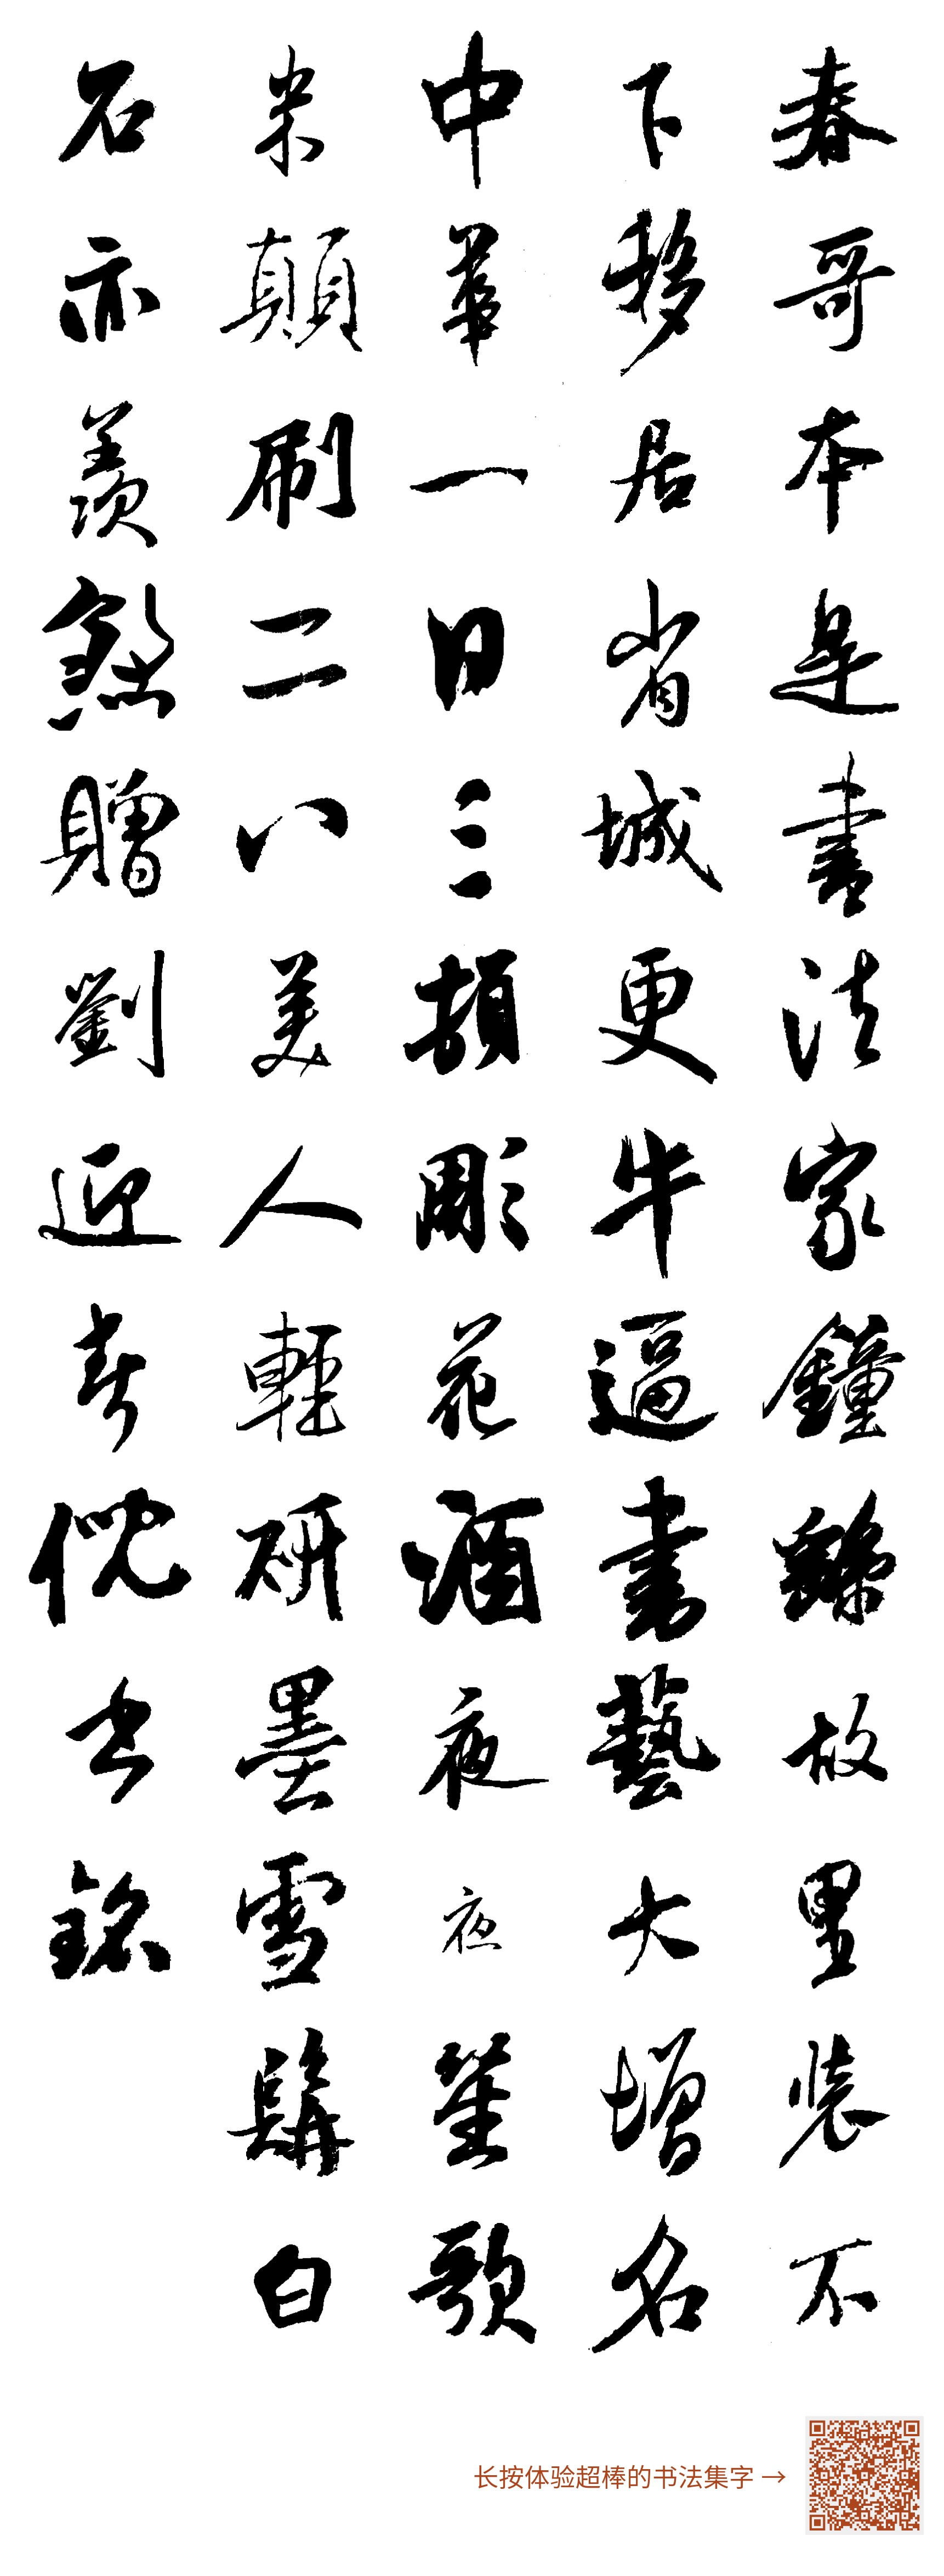 春哥本是書法家鐘繇故里裝不
下移居省城更牛逼書藝大增名
中華一日三頓彫花酒夜夜笙歌
米顛刷二八美人輕研墨雪髯白
石亦羨煞贈劉迎春倪书銘
长按体验超棒的书法集字 →